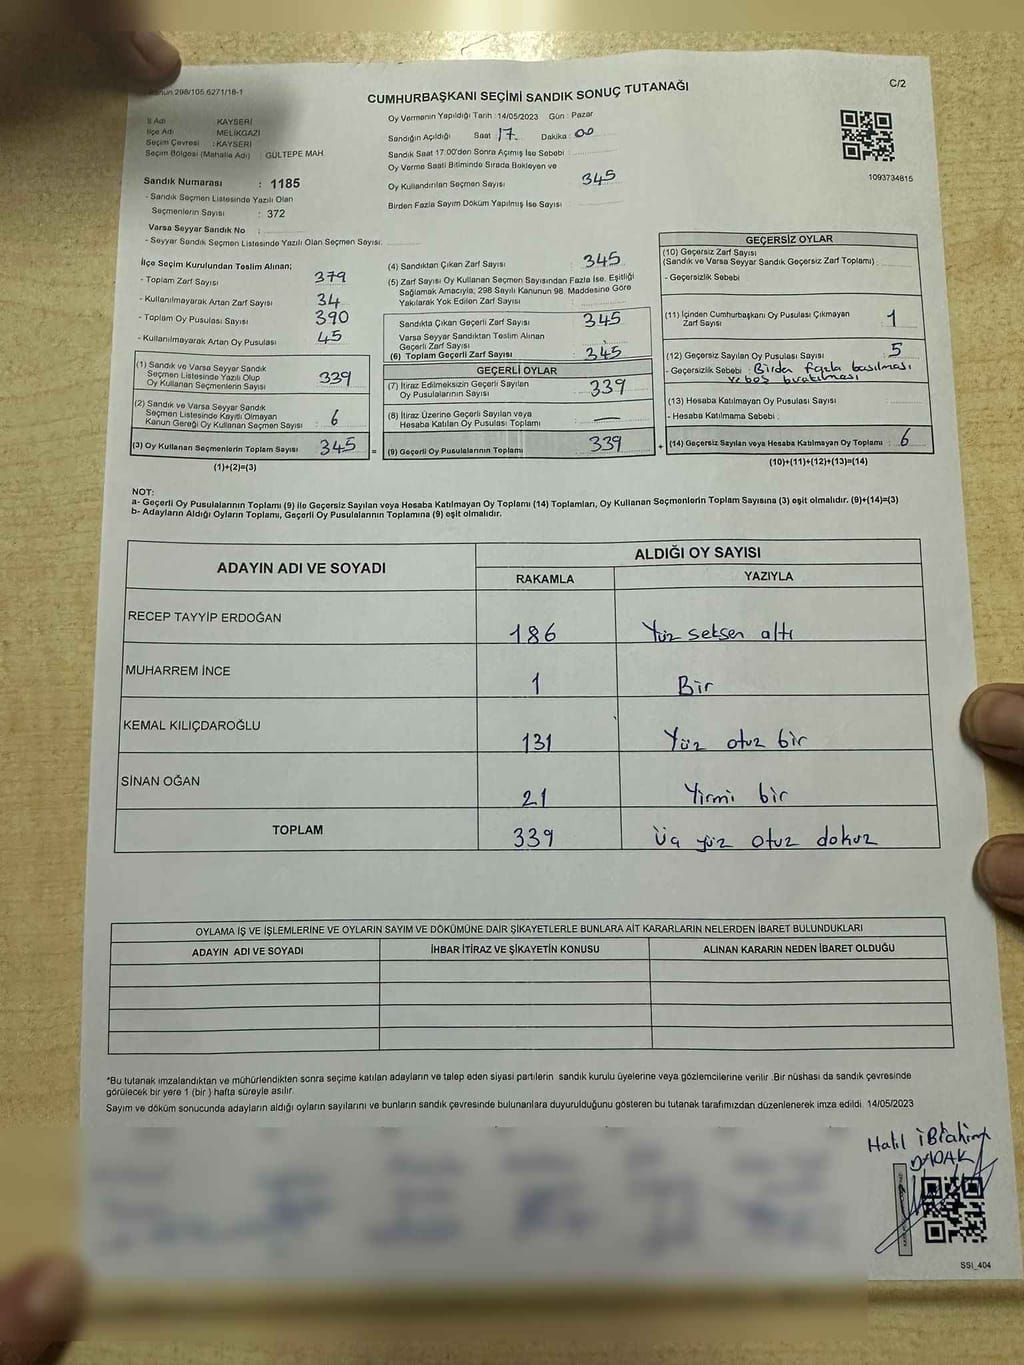 298/105,6271/18-1
CUMHURBAŞKANI SEÇİMİ SANDIK SONUÇ TUTANAĞI
C/2
İl Adı KAYSERİ
İlçe Adı MELİKGAZİ
Seçim Çevresi : KAYSERİ
Seçim Bölgesi (Mahalle Adı) : GÜLTEPE MAH.
Oy Vermenin Yapıldığı Tarih : 14/05/2023 Gün : Pazar
Sandığın Açıldığı Saat 17 Dakika : 00
Sandık Saat 17:00'den Sonra Açımış İse Sebebi :
Oy Verme Saati Bitiminde Sırada Bekleyen ve
Oy Kullandırılan Seçmen Sayısı 345
Birden Fazla Sayım Döküm Yapılmış İse Sayısı
1093734815
Sandık Numarası : 1185
- Sandık Seçmen Listesinde Yazılı Olan
Seçmenlerin Sayısı : 372
Varsa Seyyar Sandık No :
- Seyyar Sandık Seçmen Listesinde Yazılı Olan Seçmen Sayısı:
İlçe Seçim Kurulundan Teslim Alınan;
- Toplam Zarf Sayısı 379
- Kullanılmayarak Artan Zarf Sayısı 34
- Toplam Oy Pusulası Sayısı 390
- Kullanılmayarak Artan Oy Pusulası 45
(1) Sandık ve Varsa Seyyar Sandık
Seçmen Listesinde Yazılı Olup
Oy Kullanan Seçmenlerin Sayısı 339
(2) Sandık ve Varsa Seyyar Sandık
Seçmen Listesinde Kayıtlı Olmayan
Kanun Gereği Oy Kullanan Seçmen Sayısı : 6
(3) Oy Kullanan Seçmenlerin Toplam Sayısı 345 =
(1)+(2)=(3)
(4) Sandıktan Çıkan Zarf Sayısı : 345
(5) Zarf Sayısı Oy Kullanan Seçmen Sayısından Fazla İse, Eşitliği
Sağlamak Amacıyla; 298 Sayılı Kanunun 98. Maddesine Göre
Yakılarak Yok Edilen Zarf Sayısı
Sandıkta Çıkan Geçerli Zarf Sayısı : 345
Varsa Seyyar Sandıktan Teslim Alınan
Geçerli Zarf Sayısı :
(6) Toplam Geçerli Zarf Sayısı : 345
GEÇERLİ OYLAR
(7) İtiraz Edilmeksizin Geçerli Sayılan
Oy Pusulalarının Sayısı : 339
(8) İtiraz Üzerine Geçerli Sayılan veya
Hesaba Katılan Oy Pusulası Toplamı : —
(9) Geçerli Oy Pusulalarının Toplamı 339 +
GEÇERSİZ OYLAR
(10) Geçersiz Zarf Sayısı
(Sandık ve Varsa Seyyar Sandık Geçersiz Zarf Toplamı) :
- Geçersizlik Sebebi
(11) İçinden Cumhurbaşkanı Oy Pusulası Çıkmayan
Zarf Sayısı : 1
(12) Geçersiz Sayılan Oy Pusulası Sayısı : 5
- Geçersizlik Sebebi : Birden fazla basılması
ve boş bırakılması
(13) Hesaba Katılmayan Oy Pusulası Sayısı :
- Hesaba Katılmama Sebebi :
(14) Geçersiz Sayılan veya Hesaba Katılmayan Oy Toplamı : 6
(10)+(11)+(12)+(13)=(14)
NOT:
a- Geçerli Oy Pusulalarının Toplamı (9) ile Geçersiz Sayılan veya Hesaba Katılmayan Oy Toplamı (14) Toplamları, Oy Kullanan Seçmenlerin Toplam Sayısına (3) eşit olmalıdır. (9)+(14)=(3)
b- Adayların Aldığı Oyların Toplamı, Geçerli Oy Pusulalarının Toplamına (9) eşit olmalıdır.
ADAYIN ADI VE SOYADI
ALDIĞI OY SAYISI
RAKAMLA YAZIYLA
RECEP TAYYİP ERDOĞAN 186 Yüz seksen altı
MUHARREM İNCE 1 Bir
KEMAL KILIÇDAROĞLU 131 Yüz otuz bir
SİNAN OĞAN 21 Yirmi bir
TOPLAM 339 Üç yüz otuz dokuz
OYLAMA İŞ VE İŞLEMLERİNE VE OYLARIN SAYIM VE DÖKÜMÜNE DAİR ŞİKAYETLERLE BUNLARA AİT KARARLARIN NELERDEN İBARET BULUNDUKLARI
ADAYIN ADI VE SOYADI İHBAR İTİRAZ VE ŞİKAYETİN KONUSU ALINAN KARARIN NEDEN İBARET OLDUĞU
*Bu tutanak imzalandıktan ve mühürlendikten sonra seçime katılan adayların ve talep eden siyasi partilerin sandık kurulu üyelerine veya gözlemcilerine verilir .Bir nüshası da sandık çevresinde
görülecek bir yere 1 (bir ) hafta süreyle asılır.
Sayım ve döküm sonucunda adayların aldığı oyların sayılarını ve bunların sandık çevresinde bulunanlara duyurulduğunu gösteren bu tutanak tarafımızdan düzenlenerek imza edildi. 14/05/2023
Halil İBrahim
DADAK
SSI_404